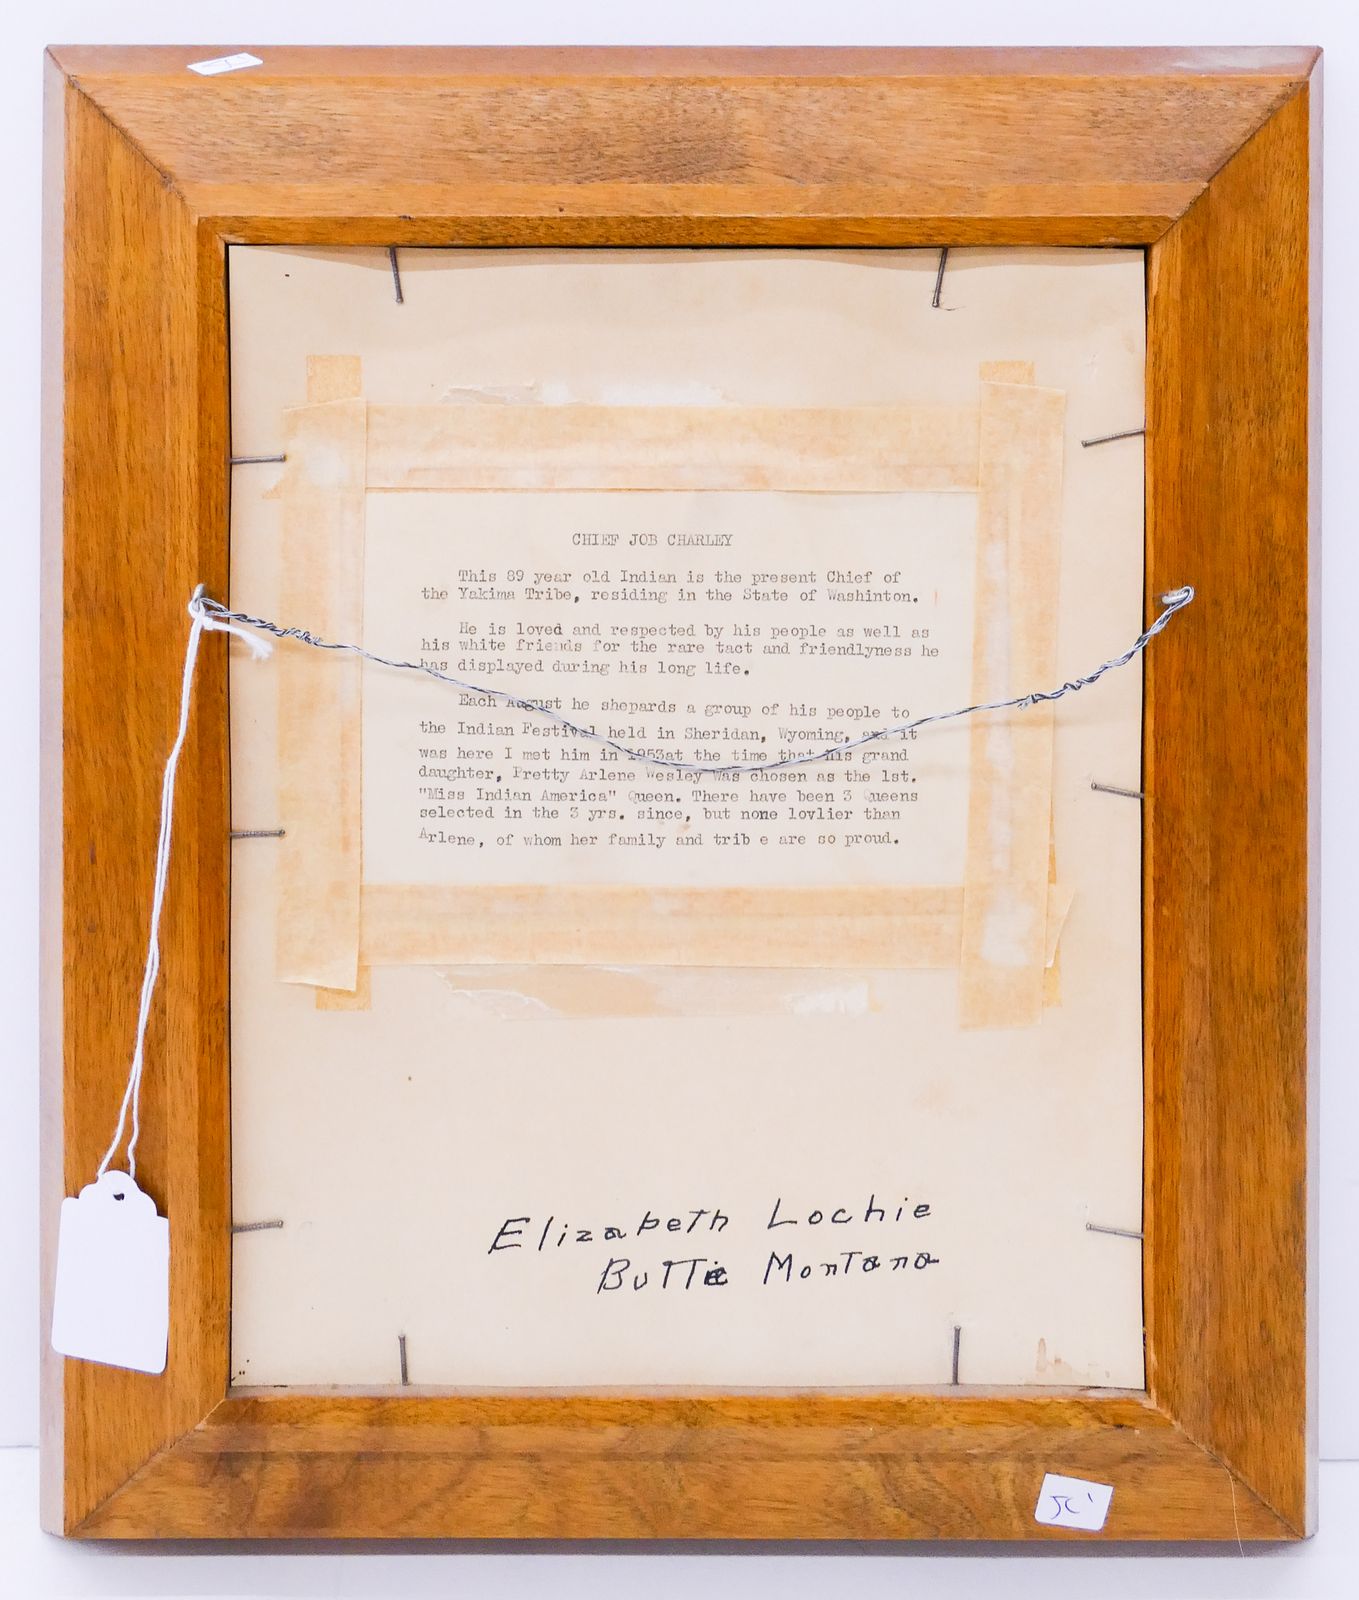 CHIEF JOB CHARLEY
This 89 year old Indian is the present Chief of
the Yakima Tribe, residing in the State of Washinton.
He is loved and respected by his people as well as
his white friends for the rare tact and friendlyness he
has displayed during his long life.
Each August he shepards a group of his people to
the Indian Festival held in Sheridan, Wyoming, and it
was here I met him in 1953at the time that his grand
daughter, Pretty Arlene Wesley was chosen as the 1st.
"Miss Indian America" Queen. There have been 3 Queens
selected in the 3 yrs. since, but none lovlier than
Arlene, of whom her family and trib e are so proud.
Elizabeth Lochie
Butte Montana